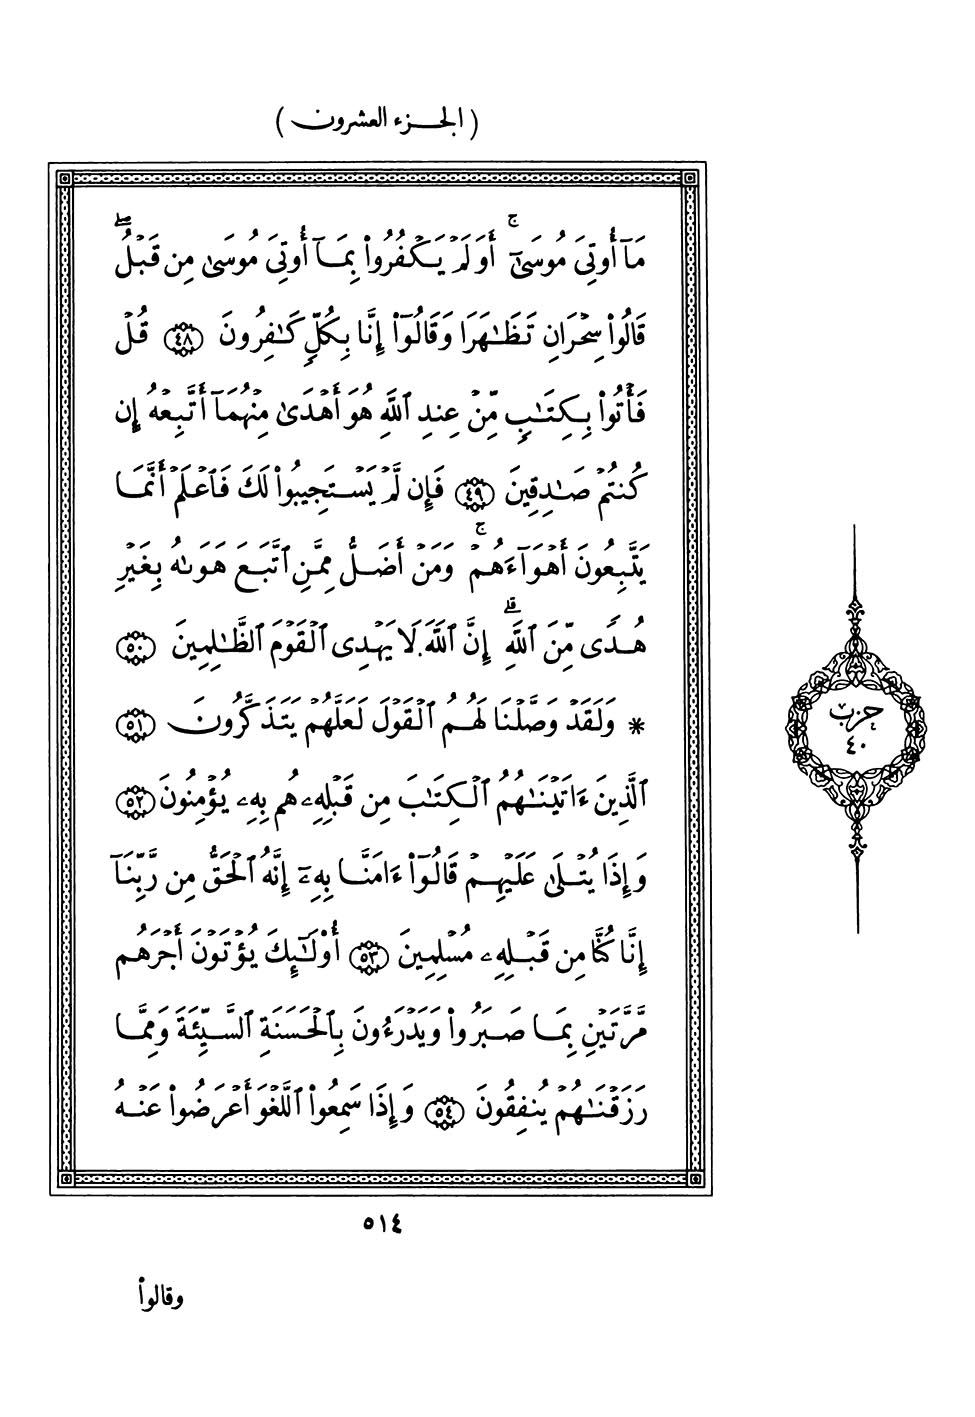 ( الجزء العشرون )
مَآ أُوتِيَ مُوسَىٰٓۚ أَوَلَمْ يَكْفُرُوا۟ بِمَآ أُوتِيَ مُوسَىٰ مِن قَبْلُۖ
قَالُوا۟ سِحْرَانِ تَظَـٰهَرَا وَقَالُوٓا۟ إِنَّا بِكُلٍّ كَـٰفِرُونَ ٤٨ قُلْ
فَأْتُوا۟ بِكِتَـٰبٍ مِّنْ عِندِ ٱللَّهِ هُوَ أَهْدَىٰ مِنْهُمَآ أَتَّبِعْهُ إِن
كُنتُمْ صَـٰدِقِينَ ٤٩ فَإِن لَّمْ يَسْتَجِيبُوا۟ لَكَ فَٱعْلَمْ أَنَّمَا
يَتَّبِعُونَ أَهْوَآءَهُمْۚ وَمَنْ أَضَلُّ مِمَّنِ ٱتَّبَعَ هَوَىٰهُ بِغَيْرِ
هُدًى مِّنَ ٱللَّهِۗ إِنَّ ٱللَّهَ لَا يَهْدِى ٱلْقَوْمَ ٱلظَّـٰلِمِينَ ٥٠
* وَلَقَدْ وَصَّلْنَا لَهُمُ ٱلْقَوْلَ لَعَلَّهُمْ يَتَذَكَّرُونَ ٥١
ٱلَّذِينَ ءَاتَيْنَـٰهُمُ ٱلْكِتَـٰبَ مِن قَبْلِهِۦ هُم بِهِۦ يُؤْمِنُونَ ٥٢
وَإِذَا يُتْلَىٰ عَلَيْهِمْ قَالُوٓا۟ ءَامَنَّا بِهِۦٓ إِنَّهُ ٱلْحَقُّ مِن رَّبِّنَآ
إِنَّا كُنَّا مِن قَبْلِهِۦ مُسْلِمِينَ ٥٣ أُو۟لَـٰٓئِكَ يُؤْتَوْنَ أَجْرَهُم
مَّرَّتَيْنِ بِمَا صَبَرُوا۟ وَيَدْرَءُونَ بِٱلْحَسَنَةِ ٱلسَّيِّئَةَ وَمِمَّا
رَزَقْنَـٰهُمْ يُنفِقُونَ ٥٤ وَإِذَا سَمِعُوا۟ ٱللَّغْوَ أَعْرَضُوا۟ عَنْهُ
حزب
٤٠
٥١٤
وقالوا۟